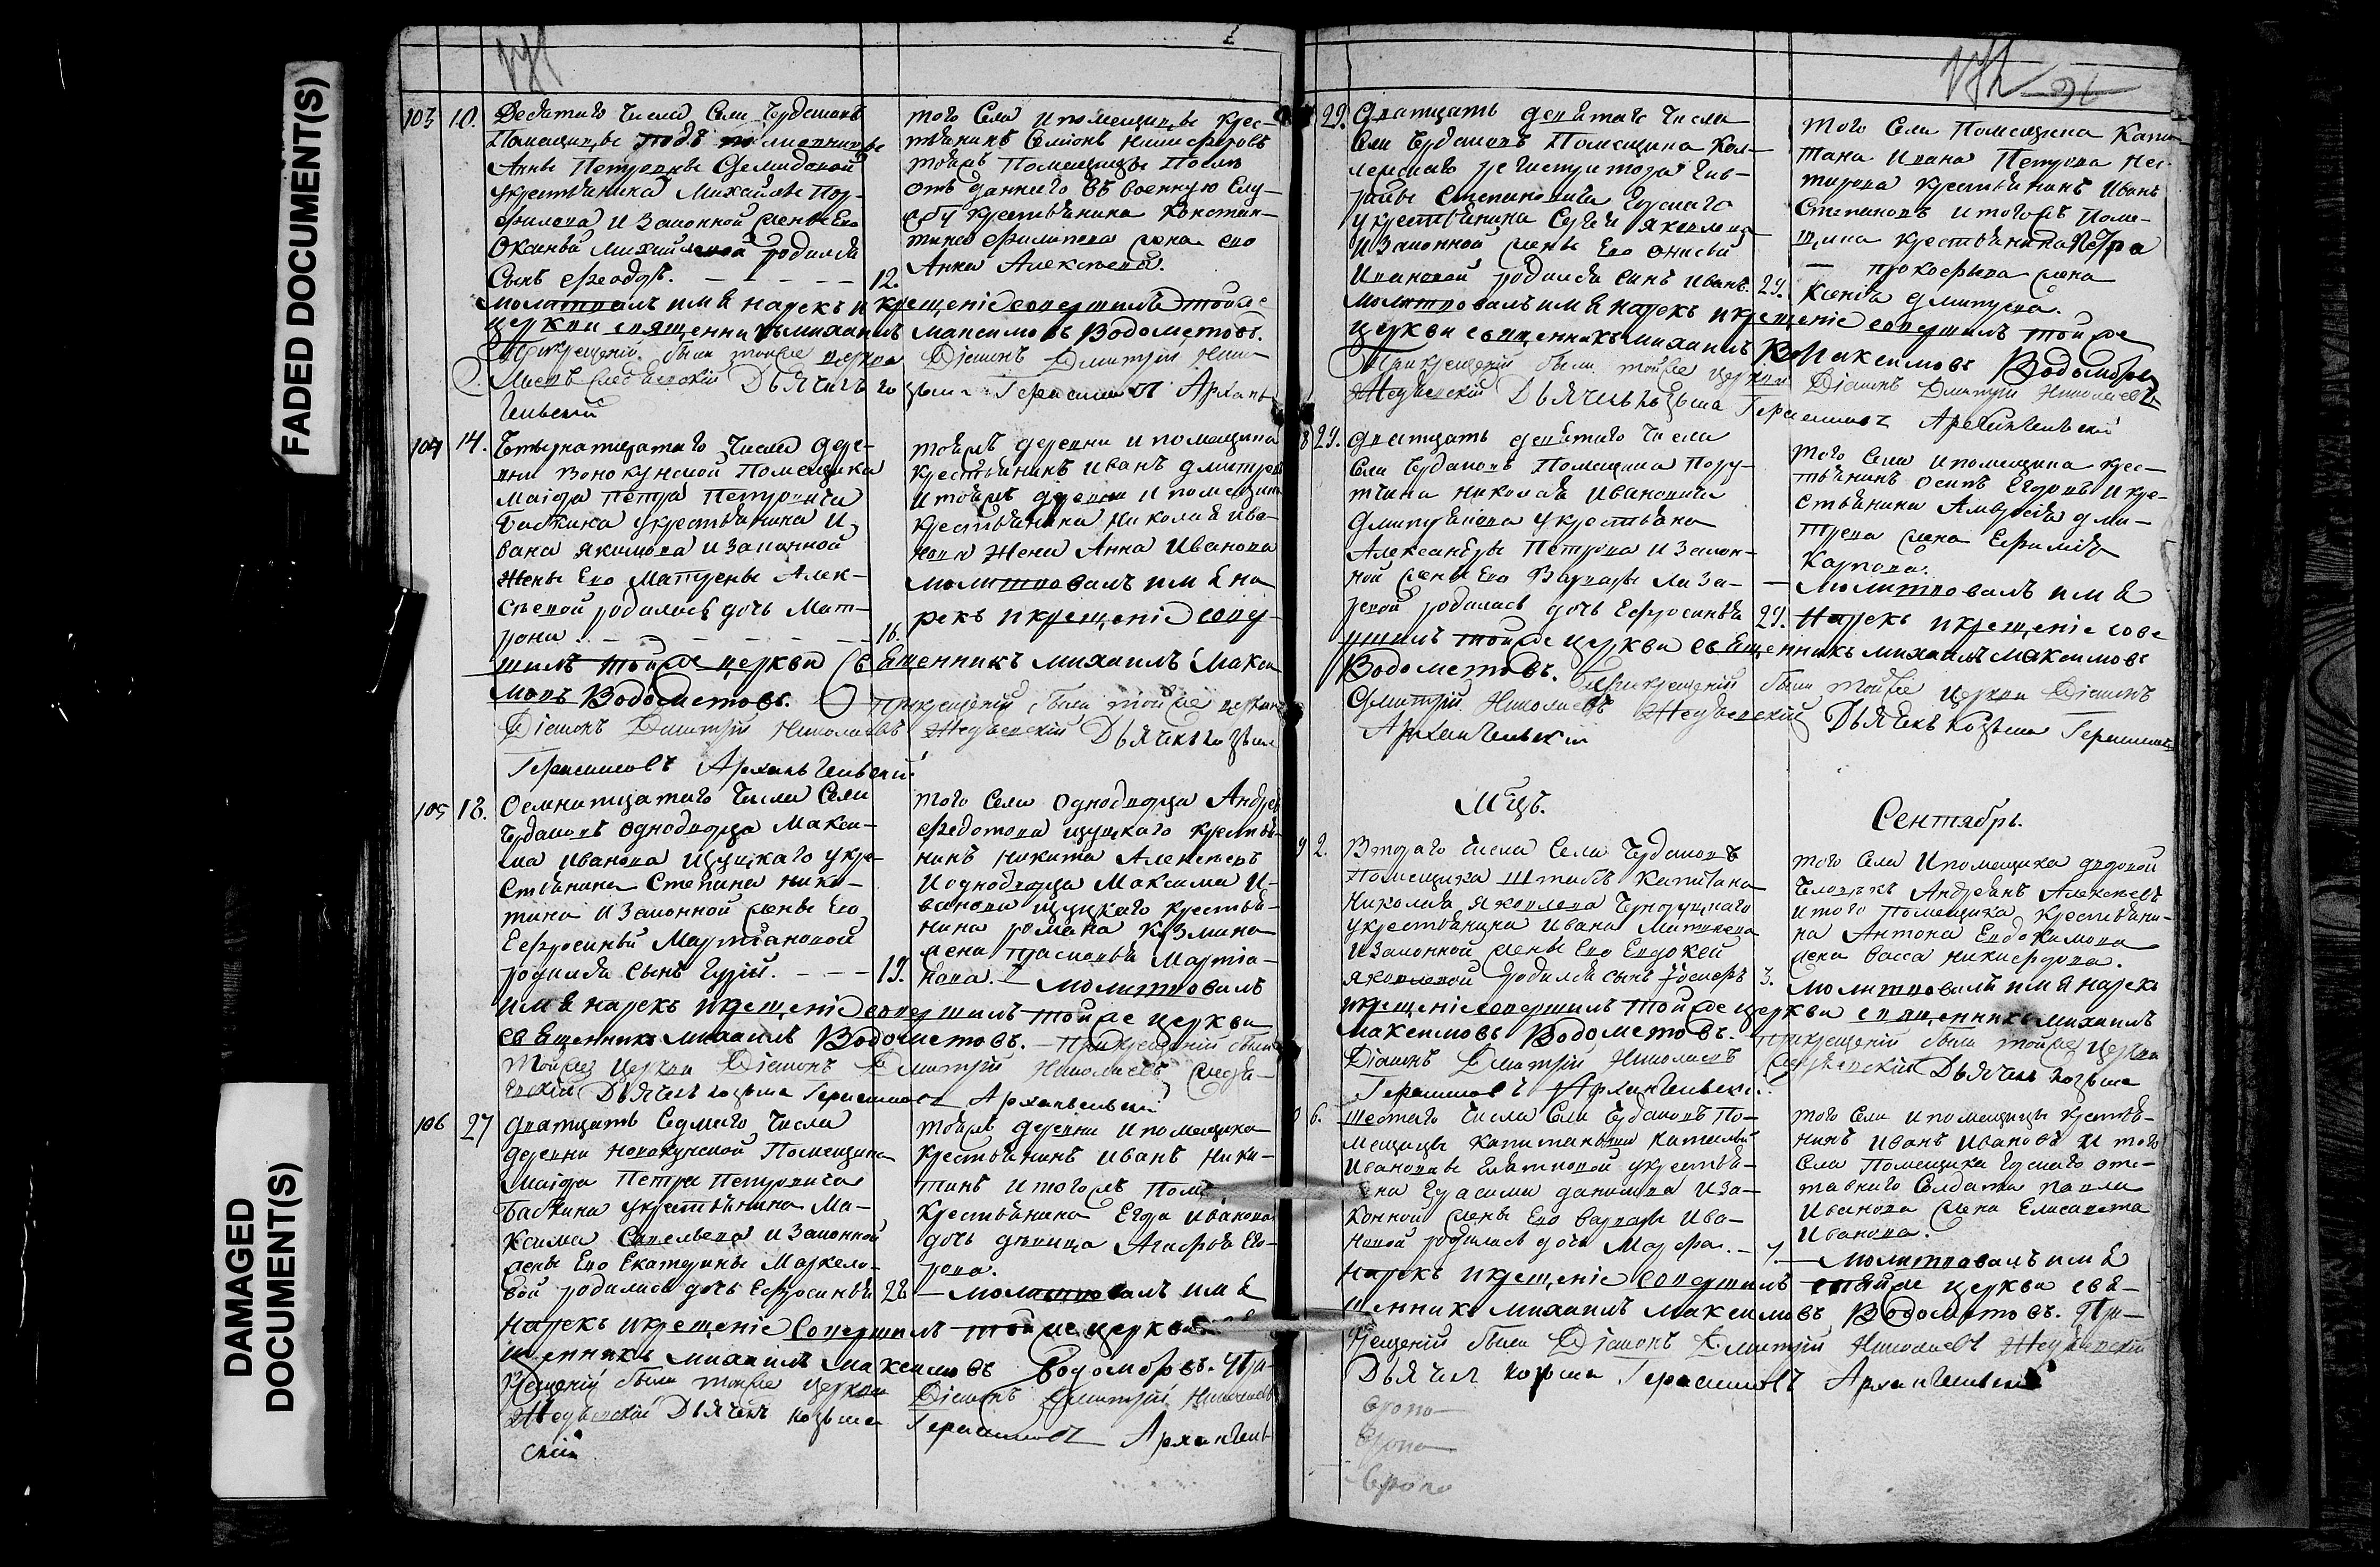 FADED DOCUMENT(S)
DAMAGED
DOCUMENT(S)
103 10. Десятаго числа Села
Помещицы
Анны Петровны Демидовой
укрестьянина Михайлы Пор-
филова И Законной жены Его
Оксиньи Михайловой родился
Сынъ Феодоръ. 12.
того Села Ипомещицы крес-
тьянинъ Семіонъ Никифоровъ
тояжъ Помещицы После
отъ даннаго въ Военную Слу-
жбу крестьянина Констан-
тина Филипова жена его
Анна Алексеева.
молитвовалъ имя нарекъ и крещеніе совершилъ тойже
церкви священникъ михаилъ максимовъ Водометовъ.
При крещеніи были тойже церкви Діаконъ Дмитрій Нико-
лаевъ Медвенскій Дьячикъ козьма Герасимовъ Архан-
гельскій
104 14. Четырнатцатаго числа дере-
вни Помещика
Маіора Петра Петровича
Баскина укрестьянина И-
вана Якимова изаконной
Жены Его Матрены Алек-
сѣевой родилась дочь Мат-
рона 16.
тояжъ деревни ипомещика
крестьянинъ Иванъ дмитрев
итояжъ деревни ипомещика
крестьянина Николая Ива-
нова Жена Анна Иванова
молитвовалъ имя на-
рекъ и крещеніе совер-
шилъ тойже церкви священникъ михаилъ Макси
мовъ Водометовъ. При крещеніи были тойже церкви
Діаконъ Дмитрій Николаевъ Медвенскій Дьячекъ козьма
Герасимовъ Архангельскій.
105 18. Осмнатцатаго числа Села
однодворца Макси-
ма Иванова укре-
стьянина Степана Ники-
тина изаконной жены Его
Ефросиньи Мартіановой
родился сынъ Гурій. 19.
того Села однодворца Андрея
Федотова крестья-
нинъ Никита Алексеевъ
Иоднодворца Максима И-
ванова крестья-
нина романа Кузмина
жена Прасковья Мартіа-
нова. — молитвовалъ
имя нарекъ икрещеніе совершилъ тойже церкви
священникъ михаилъ Водометовъ. — При крещеніи были
тойже церкви Діаконъ Дмитрій Николаевъ Медве-
нскій Дьячекъ козьма Герасимовъ Архангельскій
106 27 дватцать Седмаго числа
деревни Помещика
Маіора Петра Петровича
Баскина укрестьянина Ма-
ксима Савельева изаконной
жены Его Екатерины Маркело-
вой родилась дочь Ефросинья 28
тояжъ деревни ипомещика
крестьянинъ Иванъ Ники-
тинъ итогожъ Поме
крестьянина Егора Иванова
дочь девица Агафья Его-
рова.
— молитвовалъ имя
нарекъ икрещеніе совершилъ тойже церкви
щенникъ михаилъ максимовъ Водометовъ. При
крещеніи были тойже церкви Діаконъ Дмитрій Николаевъ
Медвенскій Дьячекъ козьма Герасимовъ Архангель
скій
29. дватцать девятаго числа
Села Помещика Кол-
лежскаго регистратора Гав-
рилы Степановича
укрестьянина Сергея Яковлева
изаконной жены Его Анисьи
Ивановой родился сынъ Иванъ. 29.
того Села Помещика Капи
тана Ивана Петрова Нес-
терова крестьянинъ Иванъ
Степановъ итогожъ Поме-
щика крестьянина Петра
— Прокофьева жена
Ксенія дмитрева.
молитвовалъ имя нарекъ икрещеніе совершилъ тойже
церкви священникъ михаилъ Максимовъ Водометов
При крещеніи были тойже церкви Діаконъ Дмитрій Николаевъ
Медвенскій Дьячекъ козьма Герасимовъ Архангельскій
8 29. дватцать девятаго числа
Села Помещика Пору-
тчика Николая Ивановича
укрестьянина
Александры Петрова изакон-
ной жены Его Варвары Лаза-
ревой родилась дочь Ефросинья 29.
того Села ипомещика крес-
тьянинъ Осипъ Егоровъ икре-
стьянина Амвросія дми-
трева жена Ефимья
Карпова.
— молитвовалъ имя
нарекъ икрещеніе сове
ршилъ тойже церкви священникъ михаилъ максимовъ
Водометовъ. При крещеніи были тойже церкви Діаконъ
Дмитрій Николаевъ Медвенскій Дьячекъ козьма Герасимовъ
Архангельскій
Мцъ. Сентябрь.
9 2. Втораго числа Села
Помещика Штабсъ Капитана
Николая Яковлева
укрестьянина Ивана Матвеева
изаконной жены Его Евдокеи
Яковлевой родился сынъ Іосифъ 3.
того Села Ипомещика дворовой
человекъ Андреянъ Алексеевъ
итого Помещика крестьяни-
на Антона Евдокимова
жена Васса никифорова.
молитвовалъ имя нарекъ
икрещеніе совершилъ тойже церкви священникъ михаилъ
максимовъ Водометовъ. При крещеніи были тойже церкви
Діаконъ Дмитрій Николаевъ Медвенскій Дьячекъ козьма
Герасимовъ Архангельскій.
6. шестаго числа Села По-
мещицы Капитанши Натальи
Ивановны укрестья-
на Герасима данилова иза-
конной жены Его Варвары Ива-
новой родилась дочь Марфа. — 7.
того Села ипомещицы крестья-
нинъ Иванъ Ивановъ и того
Села Помещика отс-
тавнаго Солдата Павла
Иванова жена Елисавета
Иванова.
— молитвовалъ имя
нарекъ икрещеніе совершилъ тойже церкви свя-
щенникъ михаилъ максимовъ Водометовъ. При-
крещеніи были Діаконъ Дмитрій Николаевъ Медвенскій
Дьячекъ козьма Герасимовъ Архангельскій